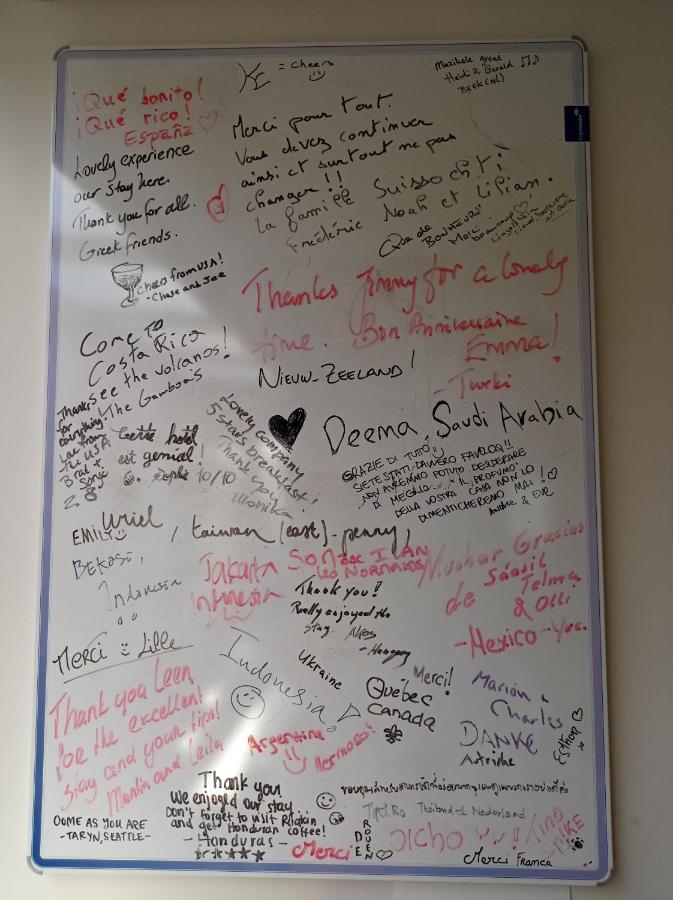 ¡Qué bonito!
¡Qué rico!
España
= Cheers
Muzikale great
Heidi & Gerald
BEEK (NL)
Lovely experience
our stay here.
Thank you for all.
Greek friends.
Merci pour tout.
Vous devez continuer
ainsi et surtout ne pas
changer !!
La famille
Frédéric Noah et Lilian.
Que de
BONHEUR!!
Merci
beaucoup
Cheers from USA!
- Chase and Joe
Thanks Jimmy for a lovely
time. Bon Anniversaire
Emma!
- Turki
Come to
Costa Rica
see the volcanos!
The Gamboa's
NIEUW-ZEELAND!
Thanks
for
everything!
Love from
The USA
Brat &
Lovely company
5 stars breakfast!
Thank you!
Monika
Cette hotel
est genial!
10/10
Deema, Saudi Arabia
GRAZIE DI TUTTO,
SIETE STATI DAVVERO FAVOLOSI!!
NON AVREMMO POTUTO DESIDERARE
DI MEGLIO... IL "PROFUMO"
DELLA VOSTRA CASA NON LO
DIMENTICHEREMO MAI!
EMILY
Uriel
, taiwan (east) - penny,
BEKASI,
Indonesia
Jakarta
Intnesia
Muchas Gracias
de
Telma
& Olli
- Mexico -
Thank you!
Really enjoyed the
stay
- Hungary
Merci Lille
Indonesia
Ukraine
Merci!
Québec
Canada
Marion &
Charles
DANKE
Esthon
Thank you Leen
for the excellent
stay and your tips!
Martin and Leila
Argentina
Hermoso!
COME AS YOU ARE
- TARYN, SEATTLE -
Thank you
we enjoyed our stay
Don't forget to visit
and get Honduran coffee!
- Honduras -
Merci
DE
ROUEN
Thailand & Nederland
DICHO
Merci France